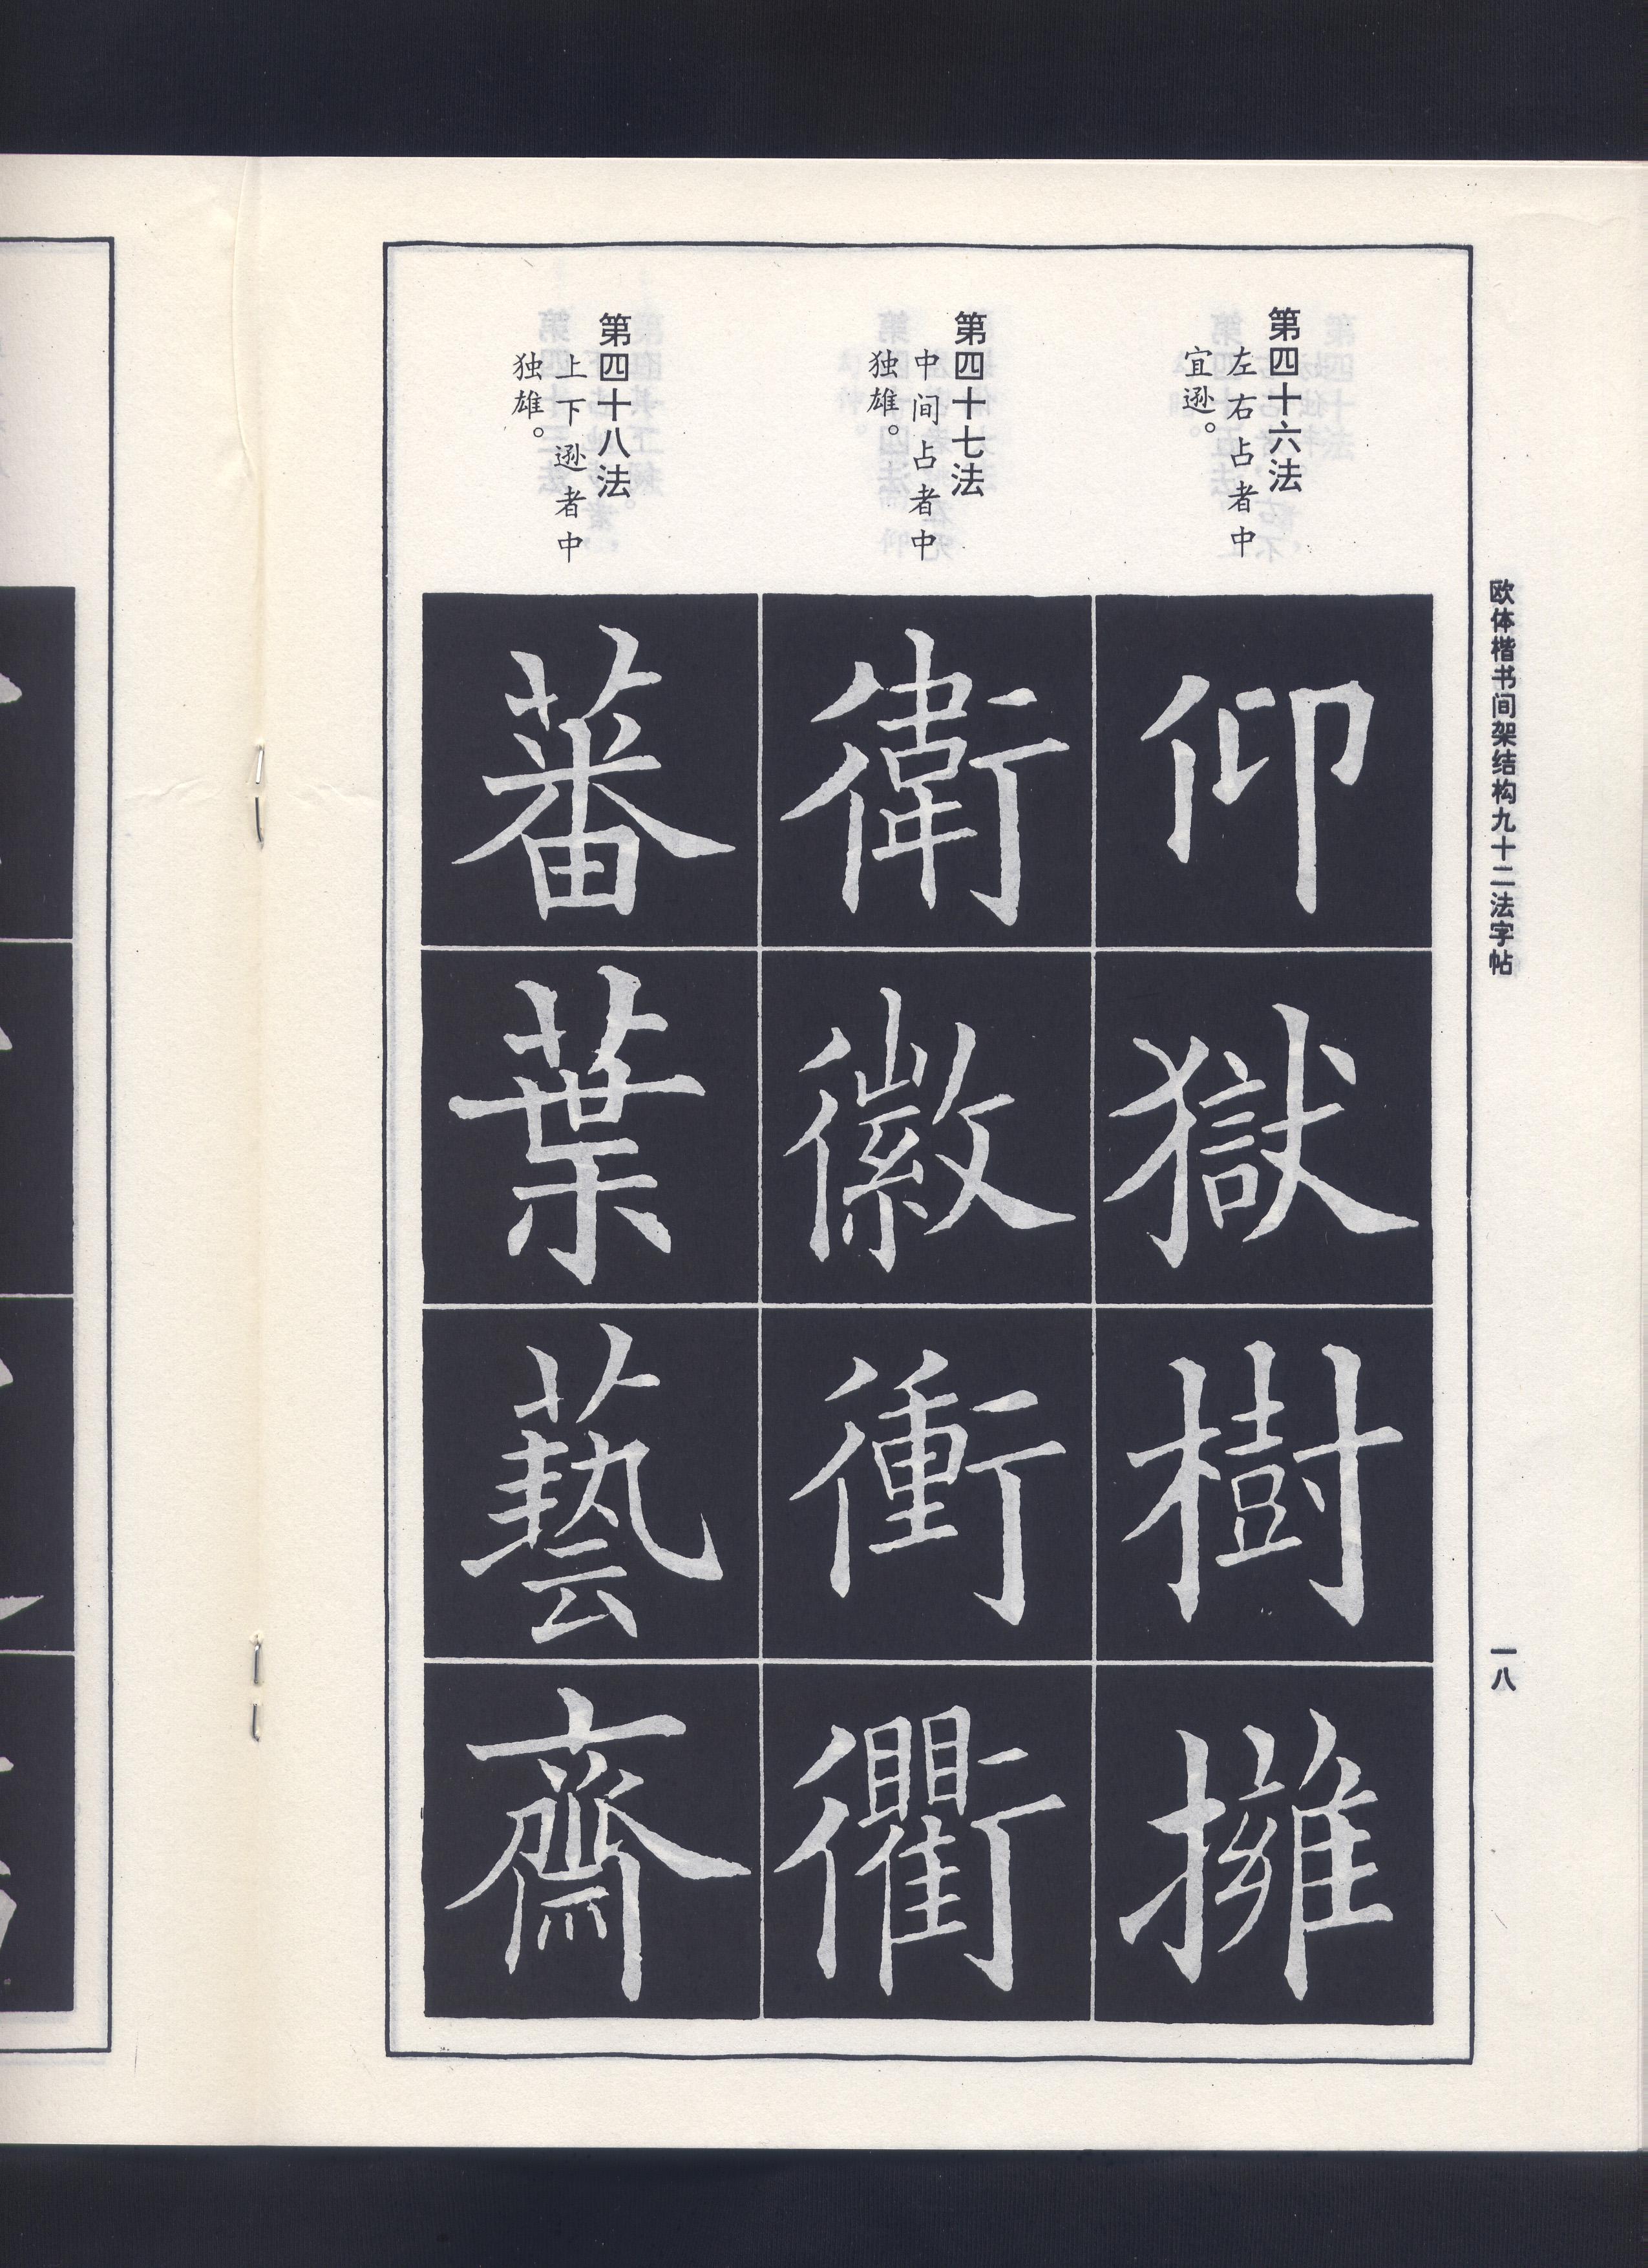 欧体楷书间架结构九十二法字帖
一八
第四十六法
左右占者中
宜逊。
仰
獄
樹
擁
第四十七法
中间占者中
独雄。
衛
徽
衝
衢
第四十八法
上下逊者中
独雄。
蕃
葉
藝
齋